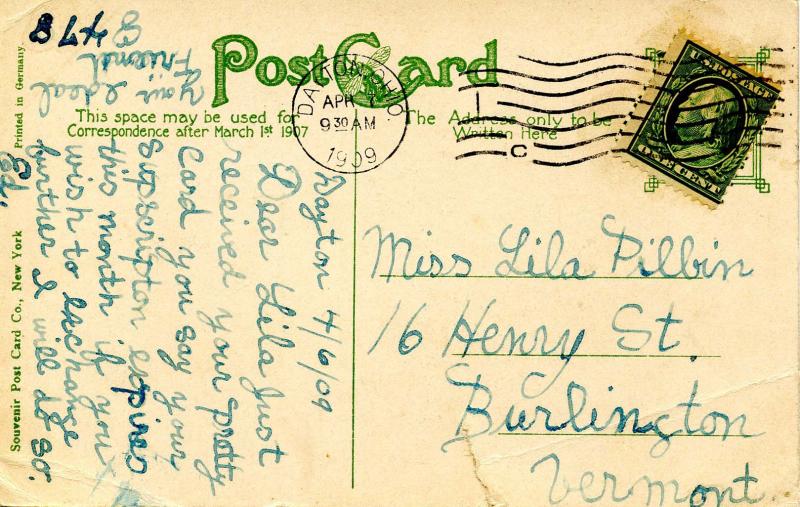 Post Card
This space may be used for
Correspondence after March 1st 1907
The Address only to be
Written Here
DAYTON, OHIO
APR 7
9 30 AM
1909
C
ONE CENT
Dayton 4/6/09
Dear Lila Just
received your pretty
Card you say your
supscription expires
this month if you
wish to exchange
further I will do so.
Your ideal
Friend
Ed.
Miss Lila Pilbin
16 Henry St.
Burlington
Vermont.
Souvenir Post Card Co., New York
Printed in Germany.